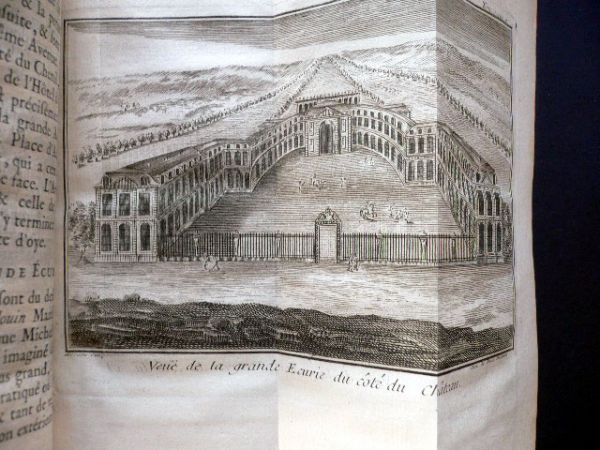 & la p
suite, &
ême Avenue
té du Cheni
de l'Hôtel
t précisémen
la grande à
Place d'A
, qui a cen
e face. L'a
& celle de
s'y terminer
te d'oye.
NDE ECU
sont du de
ouin Man
me Miche
imaginé
us grand,
pratiqué es
& tant de
on extérieu
Veüe de la grande Ecurie du côté du Château.